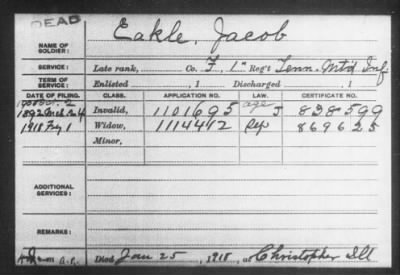 DEAD
NAME OF SOLDIER: Eakle, Jacob
SERVICE: Late rank, Co. F, 1" Reg't Tenn. Mt'd Inf
TERM OF SERVICE: Enlisted , 1 Discharged , 1
DATE OF FILING. CLASS. APPLICATION NO. LAW. CERTIFICATE NO.
1892 Invalid, 1101695 age 838599
1918 Widow, 1114412 Rep 869625
Minor,
ADDITIONAL SERVICES:
REMARKS:
Died Jan 25, 1918, at Christopher Ill